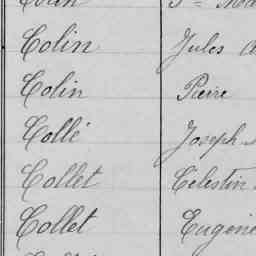 Colin Jules
Colin Pierre
Collé Joseph
Collet Célestin
Collet Eugène